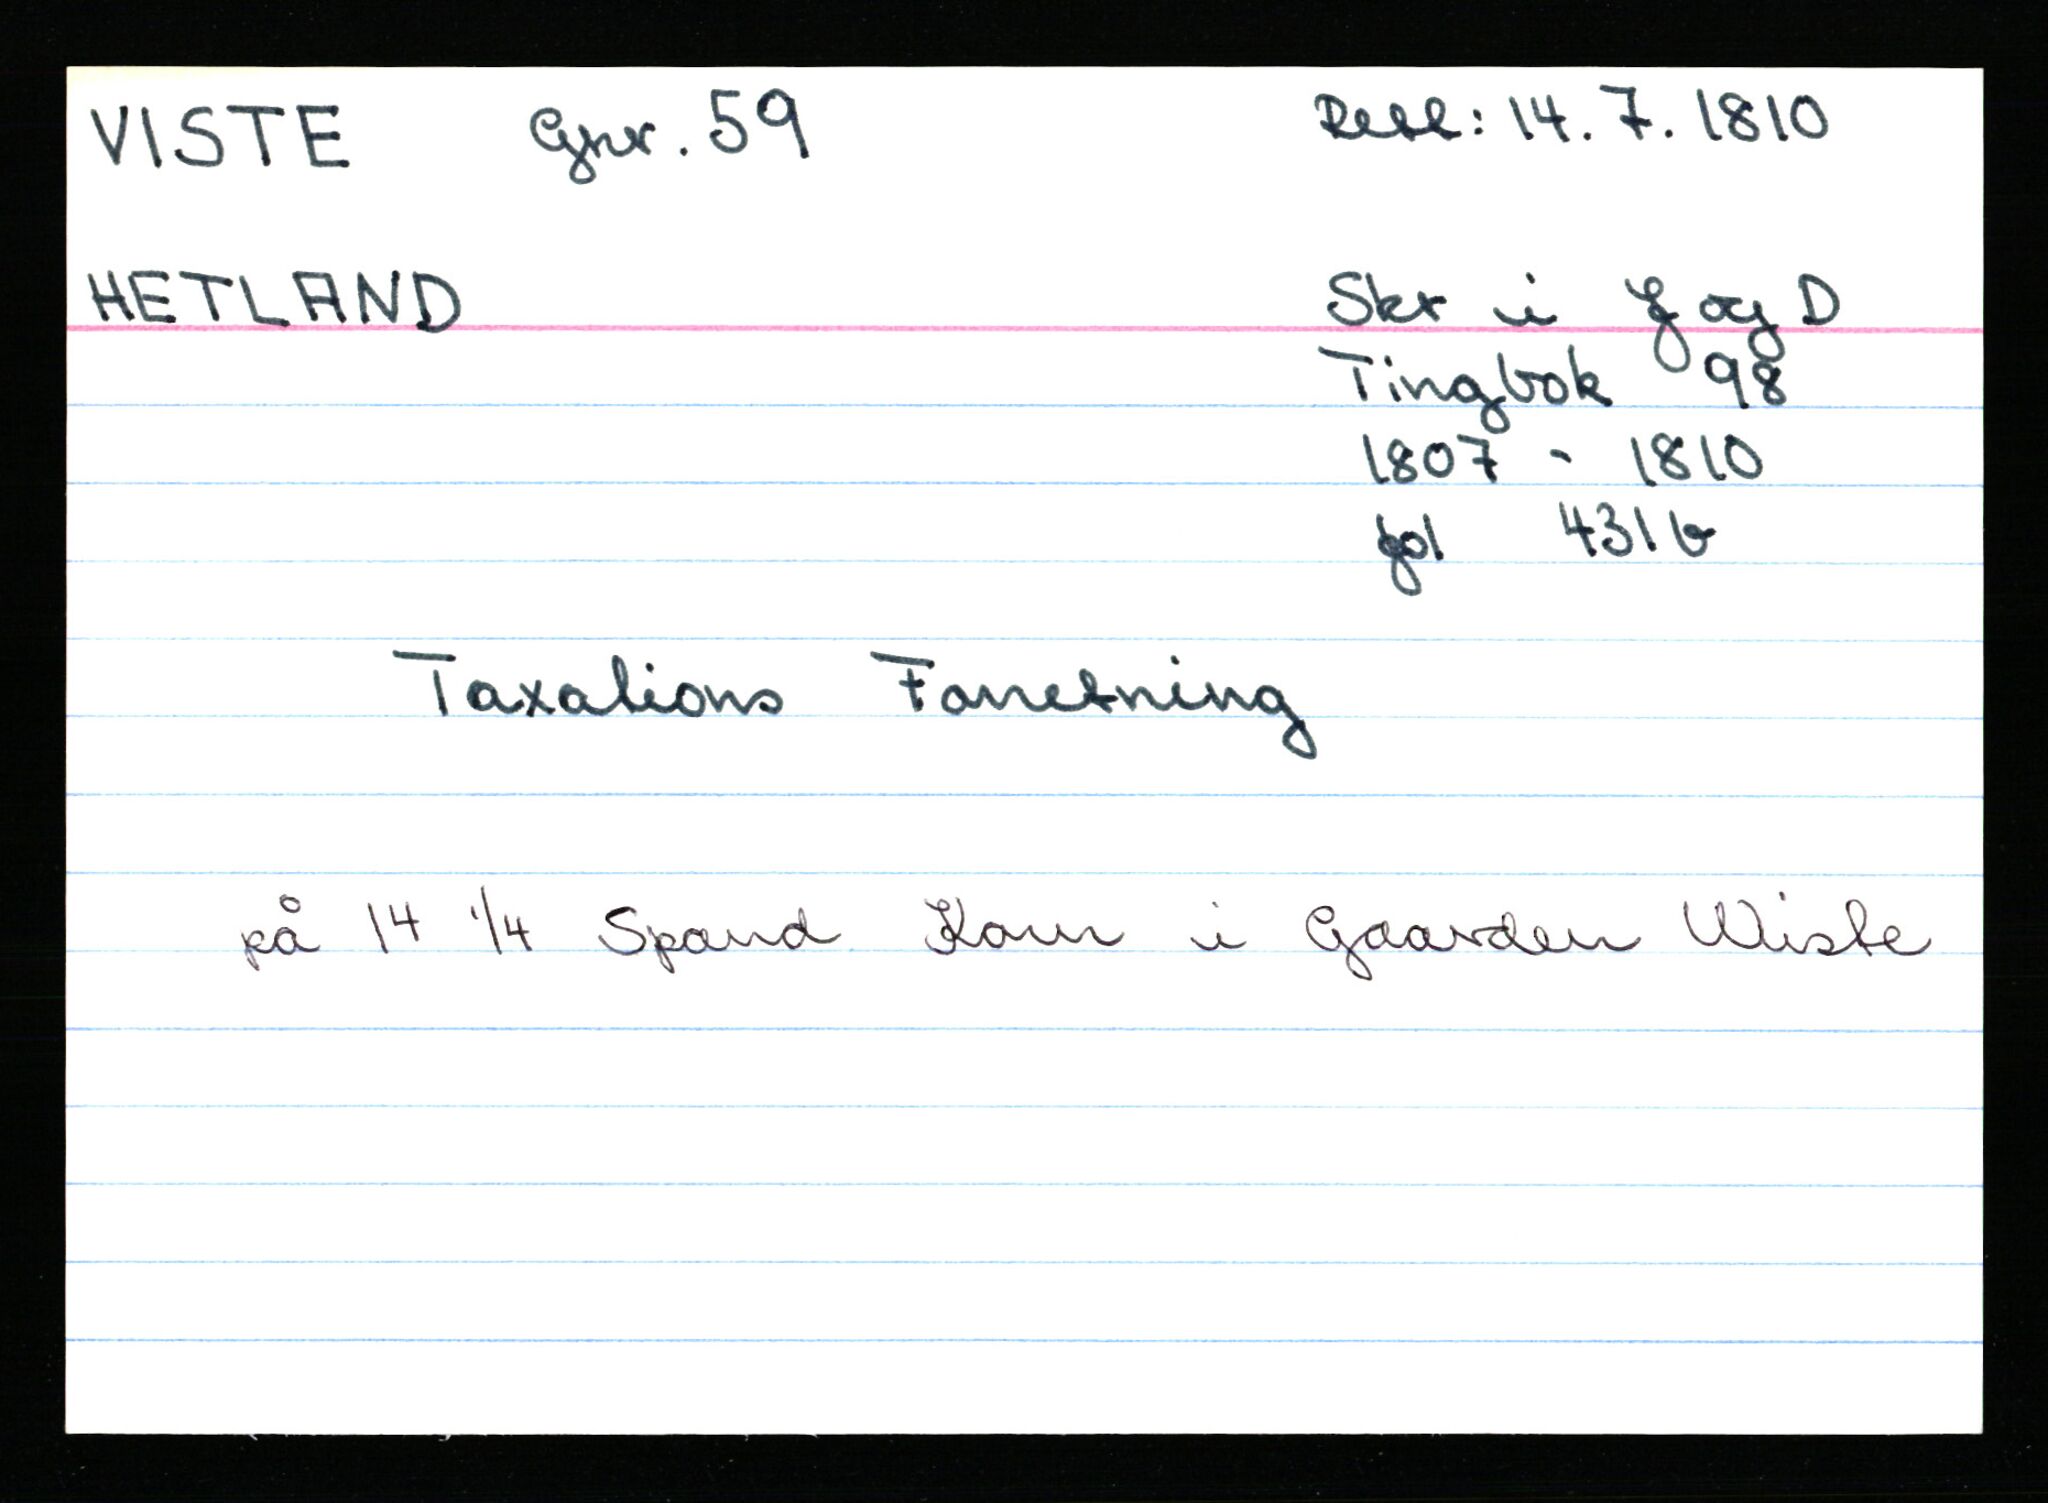 VISTE Gnr. 59 Retl: 14.7.1810
HETLAND Skr i J og D
Tingbok 98
1807 - 1810
fol 431b
Taxations Forretning
på 14 1/4 Spand Korn i Gaarden Wiste